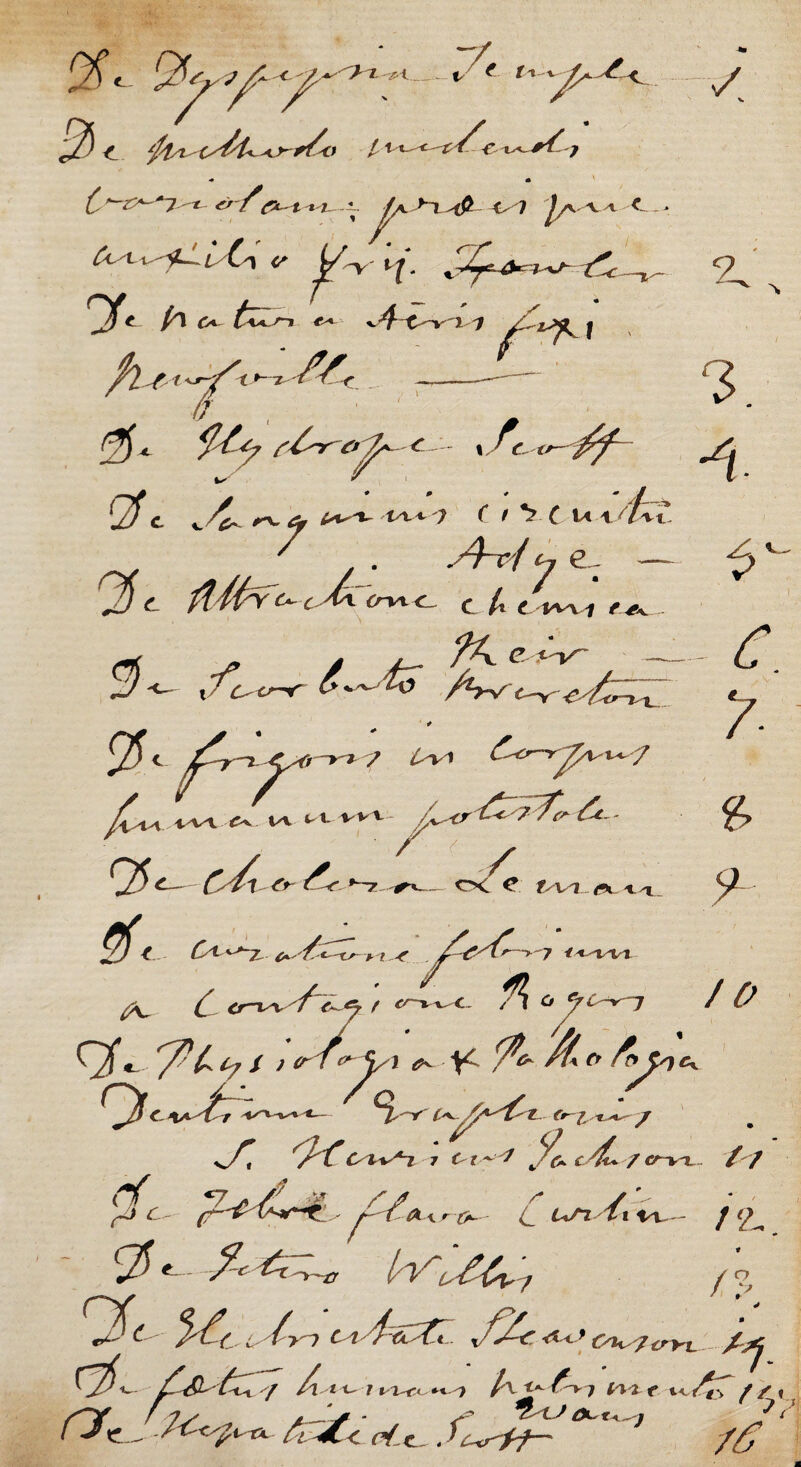 De Dyspepsia Temple 1.
De methodo medendi
variolam; præcipue
auxilio ☿rij. Fowler 2.
De natura Aëris fixi
Newfville — 3.
De Hydrope Scott 4.
De Sanguinis circuitu
Adye — 5
De Attractione chemica
Keir — 6.
De Scorbuto Brereton 7.
De frigoris in corpus
humanum potestate 8
De Cholera Leman 9
De curatione febrium
a Contagione Rogers 10
De Physiologia & Pathologia
Dentium Eruptionis
S. Henricus Jackson 11
De Febre flava Curtin 12.
De Ictero Willis 13.
De Electricitate Steavenson 14.
De fœtus humani nutrimento 15
Evans
De Hepatitide Scott 16